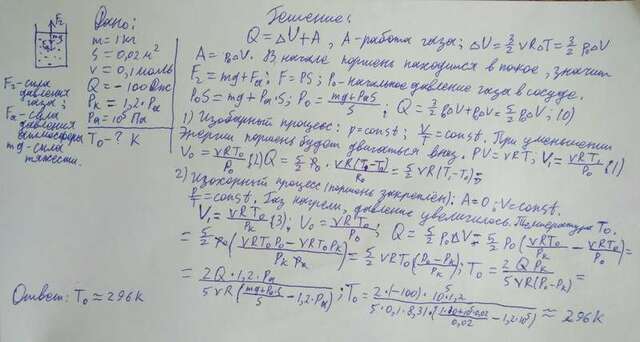 Дано:
m = 1 кг
S = 0,02 м²
ν = 0,1 моль
Q = -100 Дж
Pк = 1,2·Pa
Pa = 10⁵ Па
T₀ - ? К
F₂
mg
F₂ - сила
давления
газа;
Fa - сила
давления
атмосферы
mg - сила
тяжести.
Решение:
Q = ΔU + A, A - работа газа; ΔU = 3/2 νRΔT = 3/2 p₀ΔV
A = p₀ΔV. В начале поршень находился в покое, значит
F₂ = mg + Fa; F = PS; P₀ - начальное давление газа в сосуде.
P₀S = mg + Pa·S; P₀ = (mg+PaS)/S; Q = 3/2 p₀ΔV + p₀ΔV = 5/2 p₀ΔV; (0)
1) Изобарный процесс: p = const; V/T = const. При уменьшении
энергии поршень будет двигаться вниз. PV = νRT; V₁ = νRT₀/P₀; (1)
V₀ = νRT₀/P₀; (2) Q = 5/2 P₀ · νR(T₁-T₀)/P₀ = 5/2 νR(T₁-T₀);
2) Изохорный процесс (поршень закреплён): A = 0; V = const.
P/T = const. Газ нагрели, давление увеличилось. Температура T₀.
V₁ = νRT₀/Pк; (3); V₀ = νRT₀/P₀; Q = 5/2 p₀ΔV = 5/2 p₀(νRT₀/Pк - νRT₀/P₀) =
= 5/2 p₀(νRT₀P₀ - νRT₀Pк / Pк·P₀) = 5/2 νRT₀(P₀-Pк / Pк); T₀ = 2QPк / 5νR(P₀-Pк) =
= 2Q·1,2·Pa / 5νR(mg+PaS / S - 1,2·Pa); T₀ = 2·(-100)·10⁵·1,2 / 5·0,1·8,31·(1·10+10⁵·0,02 / 0,02 - 1,2·10⁵) ≈ 296 К
Ответ: T₀ ≈ 296 К